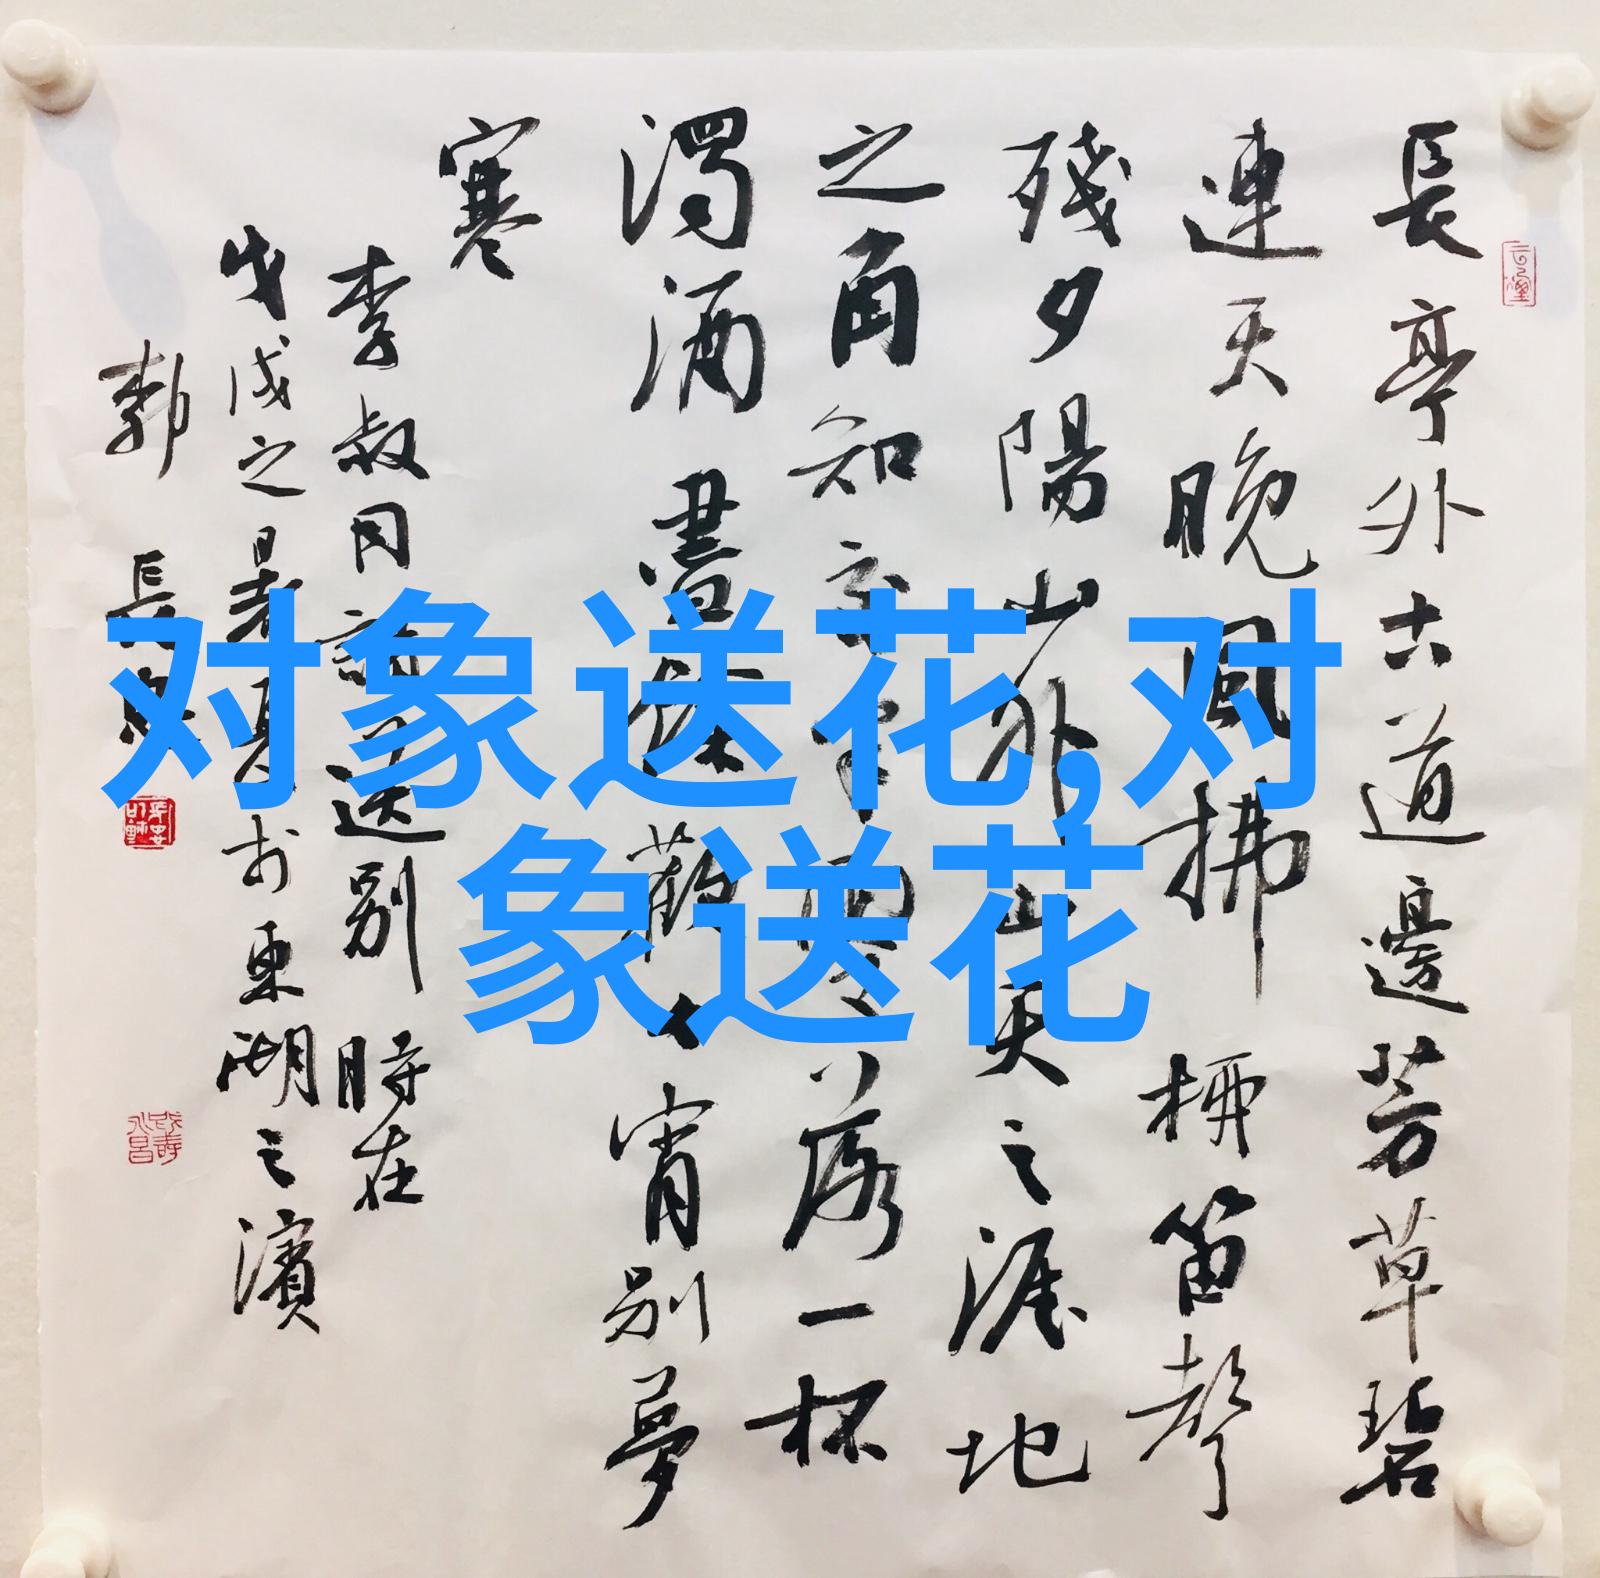 長亭外古道邊芳草碧
連天晚風拂柳笛聲
殘夕陽山外山天之涯地
之角知交半零落一杯
濁酒盡餘歡今宵別夢
寒
李叔同詞送別 時在
戊戌之暑夏於東湖之濱
長
对象送花,对
象送花